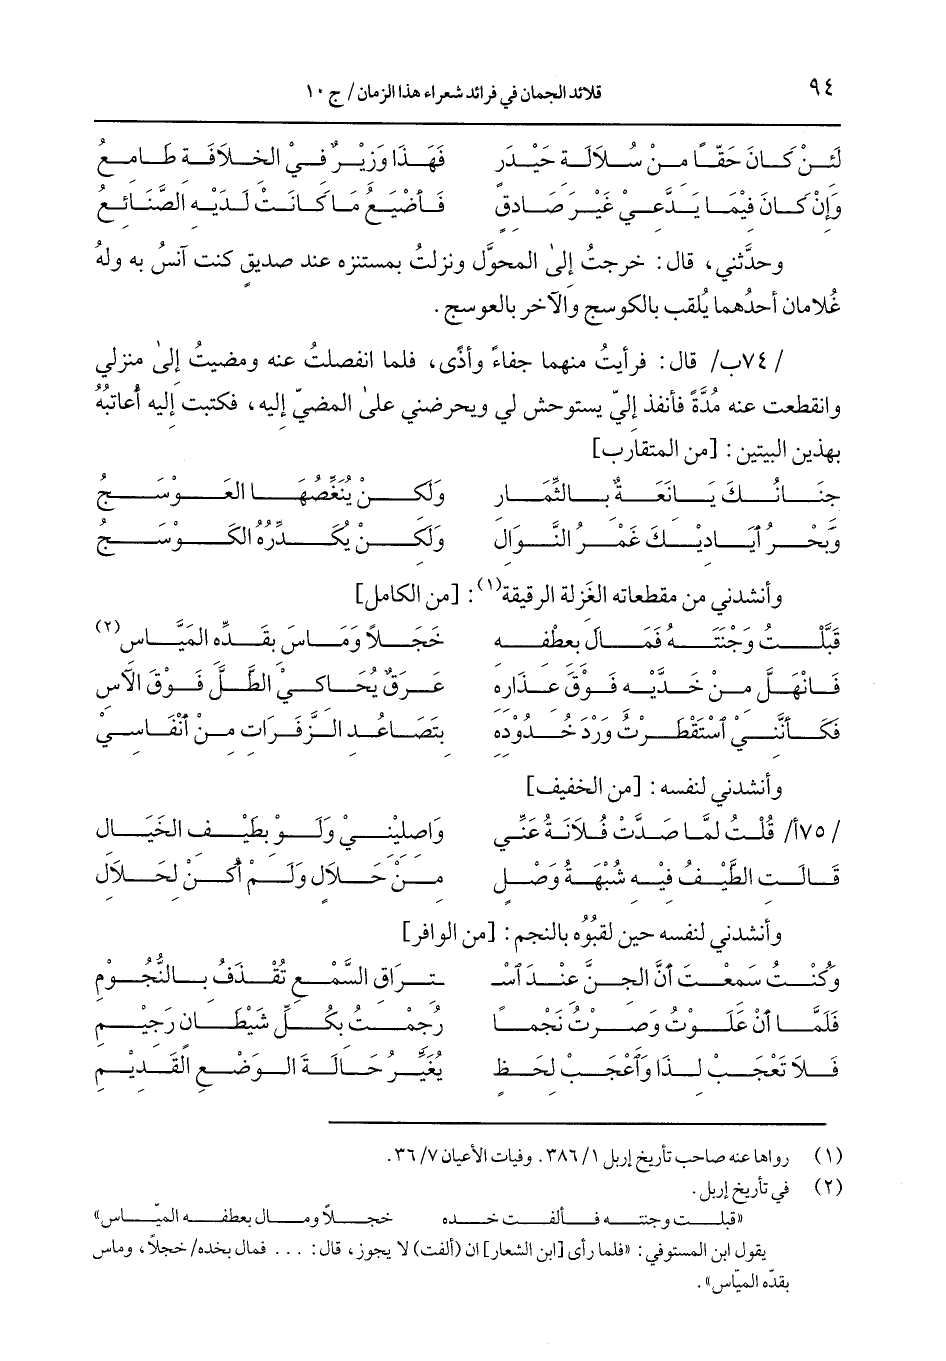 ٩٤ قلائد الجمان في فرائد شعراء هذا الزمان/ ج ١٠
لَئِنْ كَانَ حَقّاً مِنْ سُلَالَةِ حَيْدَرٍ فَهَذَا وَزِيْرٌ فِيْ الخِلَافَةِ طَامِعُ
وَإِنْ كَانَ فِيْمَا يَدَّعِي غَيْرَ صَادِقٍ فَأَضْيَعُ مَا كَانَتْ لَدَيْهِ الصَّنَائِعُ
وحدَّثني، قال: خرجتُ إلىٰ المحوَّل ونزلتُ بمستنزه عند صديقٍ كنت آنسُ به ولهُ
غُلامان أحدُهما يُلقب بالكوسج والآخر بالعوسج.
/ ٧٤ب/ قال: فرأيتُ منهما جفاءً وأذًى، فلما انفصلتُ عنه ومضيتُ إلىٰ منزلي
وانقطعت عنه مُدَّةً فأنفذ إليّ يستوحش لي ويحرضني علىٰ المضيّ إليه، فكتبت إليه أُعاتبُهُ
بهذين البيتين: [من المتقارب]
جِنَانُكَ يَانِعَةٌ بِالثِّمَارِ وَلَكِنْ يُنَغِّصُهَا العَوْسَجُ
وَبَحْرُ أَيَادِيْكَ غَمْرُ النَّوَالِ وَلَكِنْ يُكَدِّرُهُ الكَوْسَجُ
وأنشدني من مقطعاته الغَزِلة الرقيقة(١): [من الكامل]
قَبَّلْتُ وَجْنَتَهُ فَمَالَ بِعِطْفِهِ خَجَلاً وَمَاسَ بِقَدِّهِ المَيَّاسِ(٢)
فَانْهَلَّ مِنْ خَدَّيْهِ فَوْقَ عِذَارِهِ عَرَقٌ يُحَاكِيْ الطَّلَّ فَوْقَ الآسِ
فَكَأَنَّنِيْ اسْتَقْطَرْتُ وَرْدَ خُدُوْدِهِ بِتَصَاعُدِ الزَّفَرَاتِ مِنْ أَنْفَاسِيْ
وأنشدني لنفسه: [من الخفيف]
/ ٧٥أ/ قُلْتُ لمَّا صَدَّتْ فُلَانَةُ عَنِّي وَاصِلِيْنِيْ وَلَوْ بِطَيْفِ الخَيَالِ
قَالَتِ الطَّيْفُ فِيْهِ شُبْهَةُ وَصْلٍ مِنْ حَلَالٍ وَلَمْ أَكُنْ لِحَلَالِ
وأنشدني لنفسه حين لقبُوُه بالنجم: [من الوافر]
وَكُنْتُ سَمِعْتُ أَنَّ الجِنَّ عِنْدَ اسْـ ـتِرَاقِ السَّمْعِ تُقْذَفُ بِالنُّجُوْمِ
فَلَمَّا أَنْ عَلَوْتُ وَصِرْتُ نَجْماً رُجِمْتُ بِكُلِّ شَيْطَانٍ رَجِيْمِ
فَلَا تَعْجَبْ لِذَا وَاعْجَبْ لِحَظٍّ يُغَيِّرُ حَالَةَ الوَضْعِ القَدِيْمِ
(١) رواها عنه صاحب تأريخ إربل ١/ ٣٨٦. وفيات الأعيان ٧/ ٣٦.
(٢) في تأريخ إربل.
«قبلت وجنته فألفت خده خجلاً ومال بعطفه الميّاس»
يقول ابن المستوفي: «فلما رأى [ابن الشعار] ان (ألفت) لا يجوز، قال: ... فمال بخده/ خجلاً، وماس
بقدّه الميّاس».